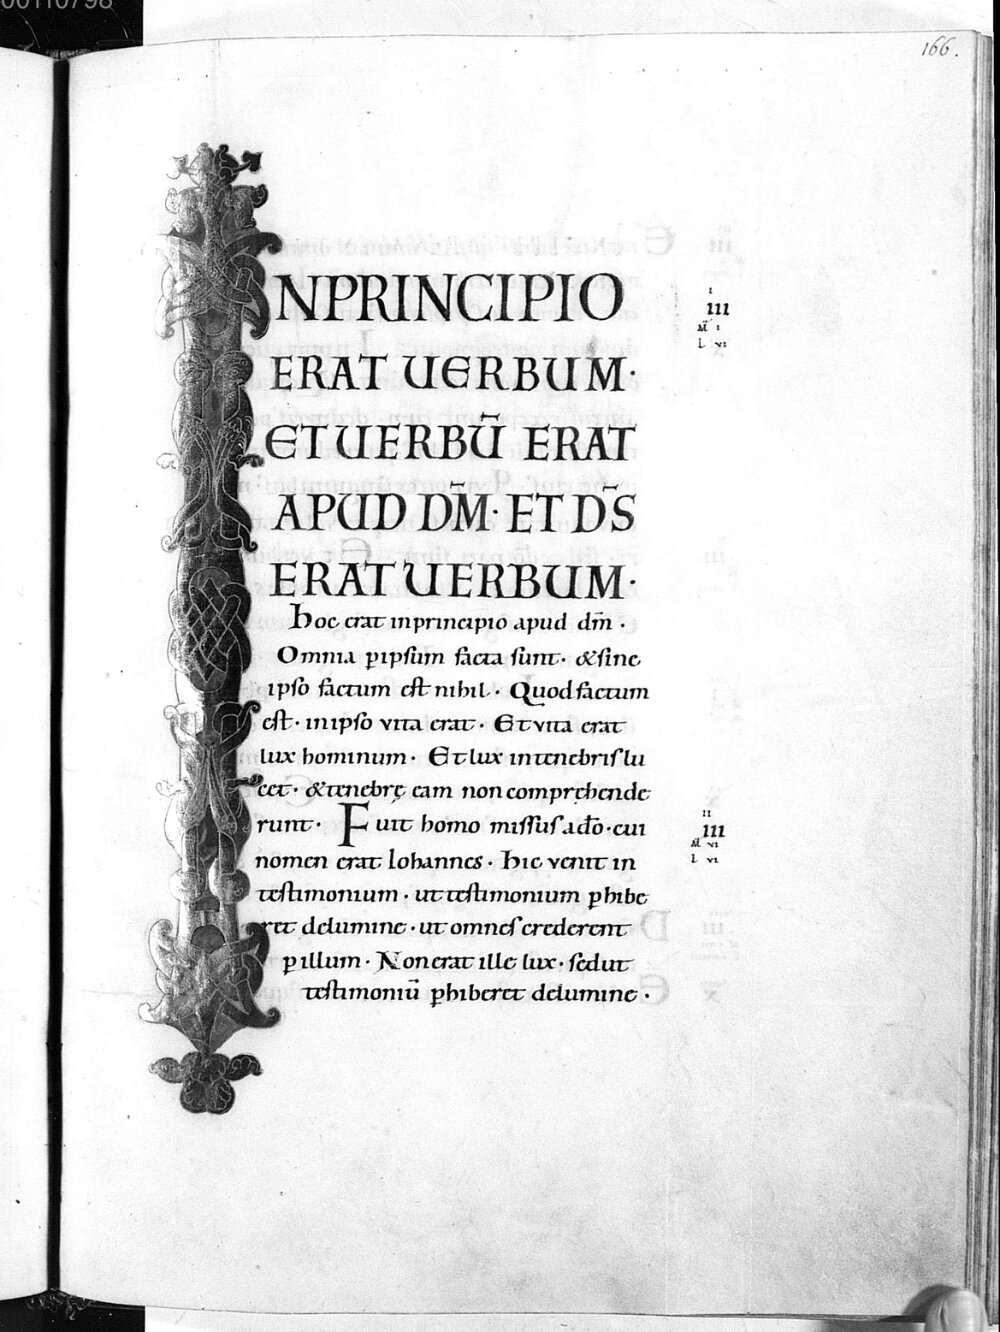 00110798
166.
INPRINCIPIO
ERAT UERBUM·
ET UERBŪ ERAT
APUD DM̄· ET DS̄
ERAT UERBUM·
Hoc erat inprincipio apud dm̄·
Omnia p̲ipsum facta sunt· &sine
ipso factum est nihil· Quodfactum
est· inipso vita erat· Etvita erat
lux hominum· Etlux intenebris lu
cet· &tenebrę eam noncomprehende
runt· Fuit homo missus ado̅· cui
nomen erat Iohannes· Hic venit in
testimonium· uttestimonium p̲hibe
ret delumine· ut omnes crederent
p̲illum· Nonerat ille lux· sedut
testimoniū p̲hiberet delumine·
I
III
M̄ I
L VI
II
III
M̄ VI
L VI